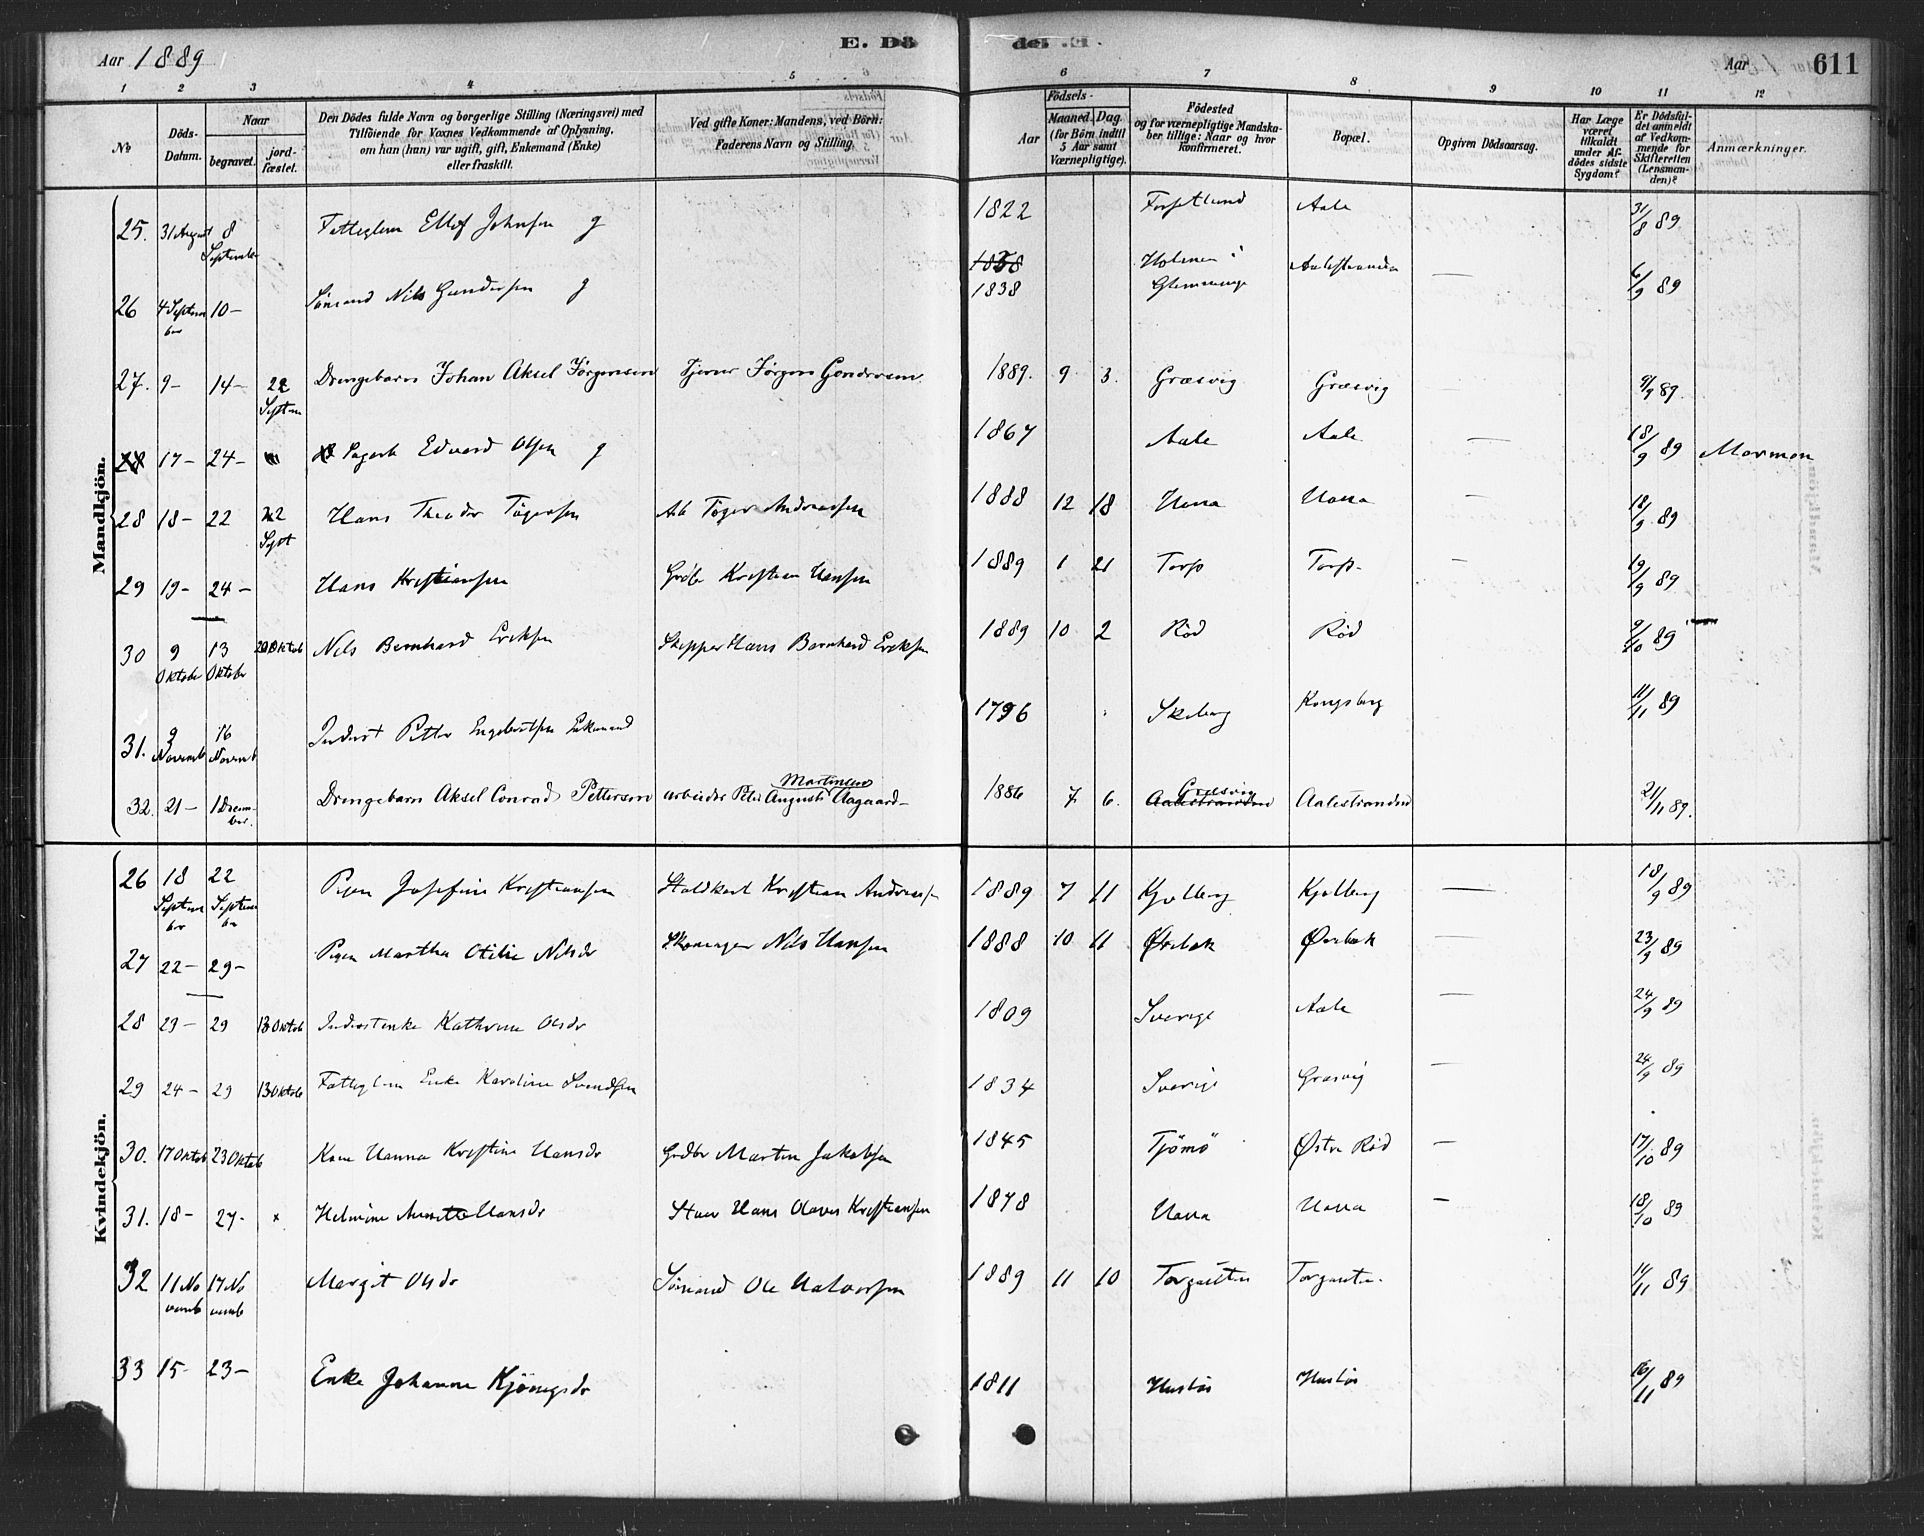 Aar 1889
E. Dö
de.
Aar
611
1 2 3 4 5 6 7 8 9 10 11 12
No
Döds-Datum.
Naar
begravet.
jord-fæstet.
Den Dödes fulde Navn og borgerlige Stilling (Næringsvei) med
Tilföiende for Voxnes Vedkommende af Oplysning,
om han (hun) var ugift, gift, Enkemand (Enke)
eller fraskilt.
Ved gifte Koner: Mandens, ved Börn:
Faderens Navn og Stilling.
Födsels-
Aar
Maaned. Dag.
(for Börn indtil
5 Aar samt
Værnepligtige).
Födested
og for værnepligtige Mandska-
ber tillige: Naar og hvor
konfirmeret.
Bopæl.
Opgiven Dödsaarsag.
Har Læge
været
tilkaldt
under Af-
dödes sidste
Sygdom?
Er Dödsfal-
det anmeldt
af Vedkom-
mende for
Skifteretten
(Lensman-
den)?
Anmærkninger.
Mandkjön.
25. 31 August 8 September Fattiglem Ellef Johnsen g 1822 Aale 31/8 89
26 4 September 10 - Sömand Nils Gundersen g 1858 1838 Holmen i Glemminge Aalestranden — 6/9 89
27. 9 - 14 - 22 Septem Drengebarn Johan Aksel Jörgensen Tjener Jörgen Gundersen 1889. 9 3. Græsvig Græsvig 9/9 89.
28 17 - 24 - Edvard Olsen g 1867 Aale Aale — 18/9 89 Mormon
28 18 - 22 22 Sept Hans Theodor Tögersen Arb Töger Andreassen 1888 12 18 Uona Uona — 18/9 89
29 19 - 24 - Hans Kristiansen Grdbr Kristian Hansen 1889 1 21 Torp Torp — 19/9 89
30 9 Oktober 13 Oktober 20 Oktob Nils Bernhard Eriksen Skipper Hans Bernhard Eriksen 1889 10 2 Röd Röd 9/10 89
31. 9 Novemb 16 Novemb Inderst Petter Engebretsen Enkemand 1796 Skiberg Kongsberg 11/11 89
32. 21 - 1 Decem-ber. Drengebarn Aksel Conrad Pettersen arbeider Peter August Martinsen Aagaard - 1886 7. 6. Aalestranden Græsvig Aalestranden 21/11 89.
Kvindekjön.
26 18 September 22 September Pigen Josefine Kristiansen Staldkarl Kristian Andreass. 1889 7 11 Kjølberg Kjølberg — 18/9 89
27 22 - 29 - Pigen Martha Otilie Nilsdr Skomager Nils Hansen 1888 10 11 Ørebæk Ørebæk — 23/9 89
28 23 - 29 13 Oktob Inderstenke Kathrine Olsdr 1809 Sverige Aale — 24/9 89
29 24 - 29 13 Oktob Fattiglem Enke Karoline Svendsen 1834 Sverige Græsvig — 24/9 89
30. 17 Oktob 23 Oktob Kone Hanna Kristine Hansdr Grdbr Martin Jakobsen 1845 Tjömö Østre Röd — 17/10 89
31. 18 - 27 - x Helmine Annette Hansdr Hans Olaves Kristiansen 1878 Uona Uona — 18/10 89
32 11 Novemb 17 Novemb Margit Olsdr Sömand Ole Halvorsen 1889 11 10 Torgauten Torgauten. 11/11 89
33 15 - 23 - Enke Johanne Kjönigsdr 1811 Huslös Huslös 16/11 89